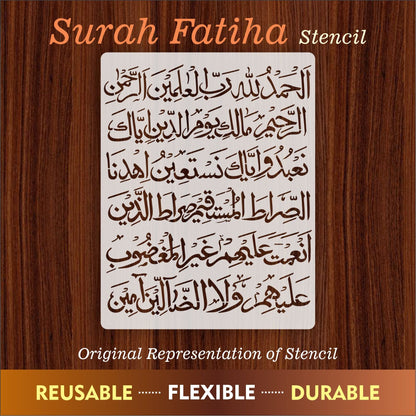 Surah Fatiha Stencil
الحمد لله رب العلمين الرحمن
الرحيم مالك يوم الدين اياك
نعبد واياك نستعين اهدنا
الصراط المستقيم صراط الذين
انعمت عليهم غير المغضوب
عليهم ولا الضالين امين
Original Representation of Stencil
REUSABLE ······ FLEXIBLE ······ DURABLE